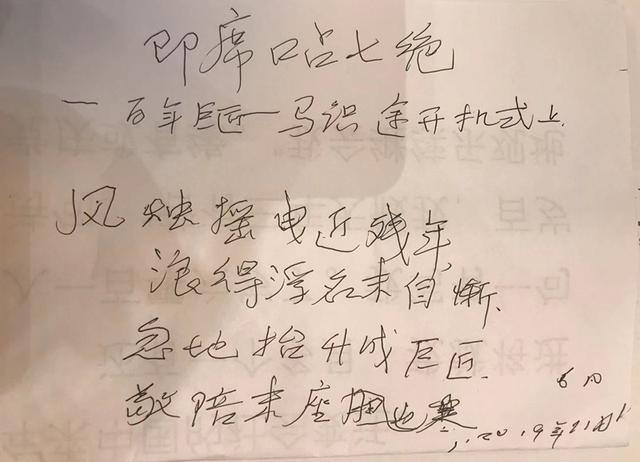 即席口占七绝
— 百年巨匠—马识途开机式上
风烛摇曳近残年,
浪得浮名未自惭、
忽地抬升成巨匠.
敬陪末座
2019年